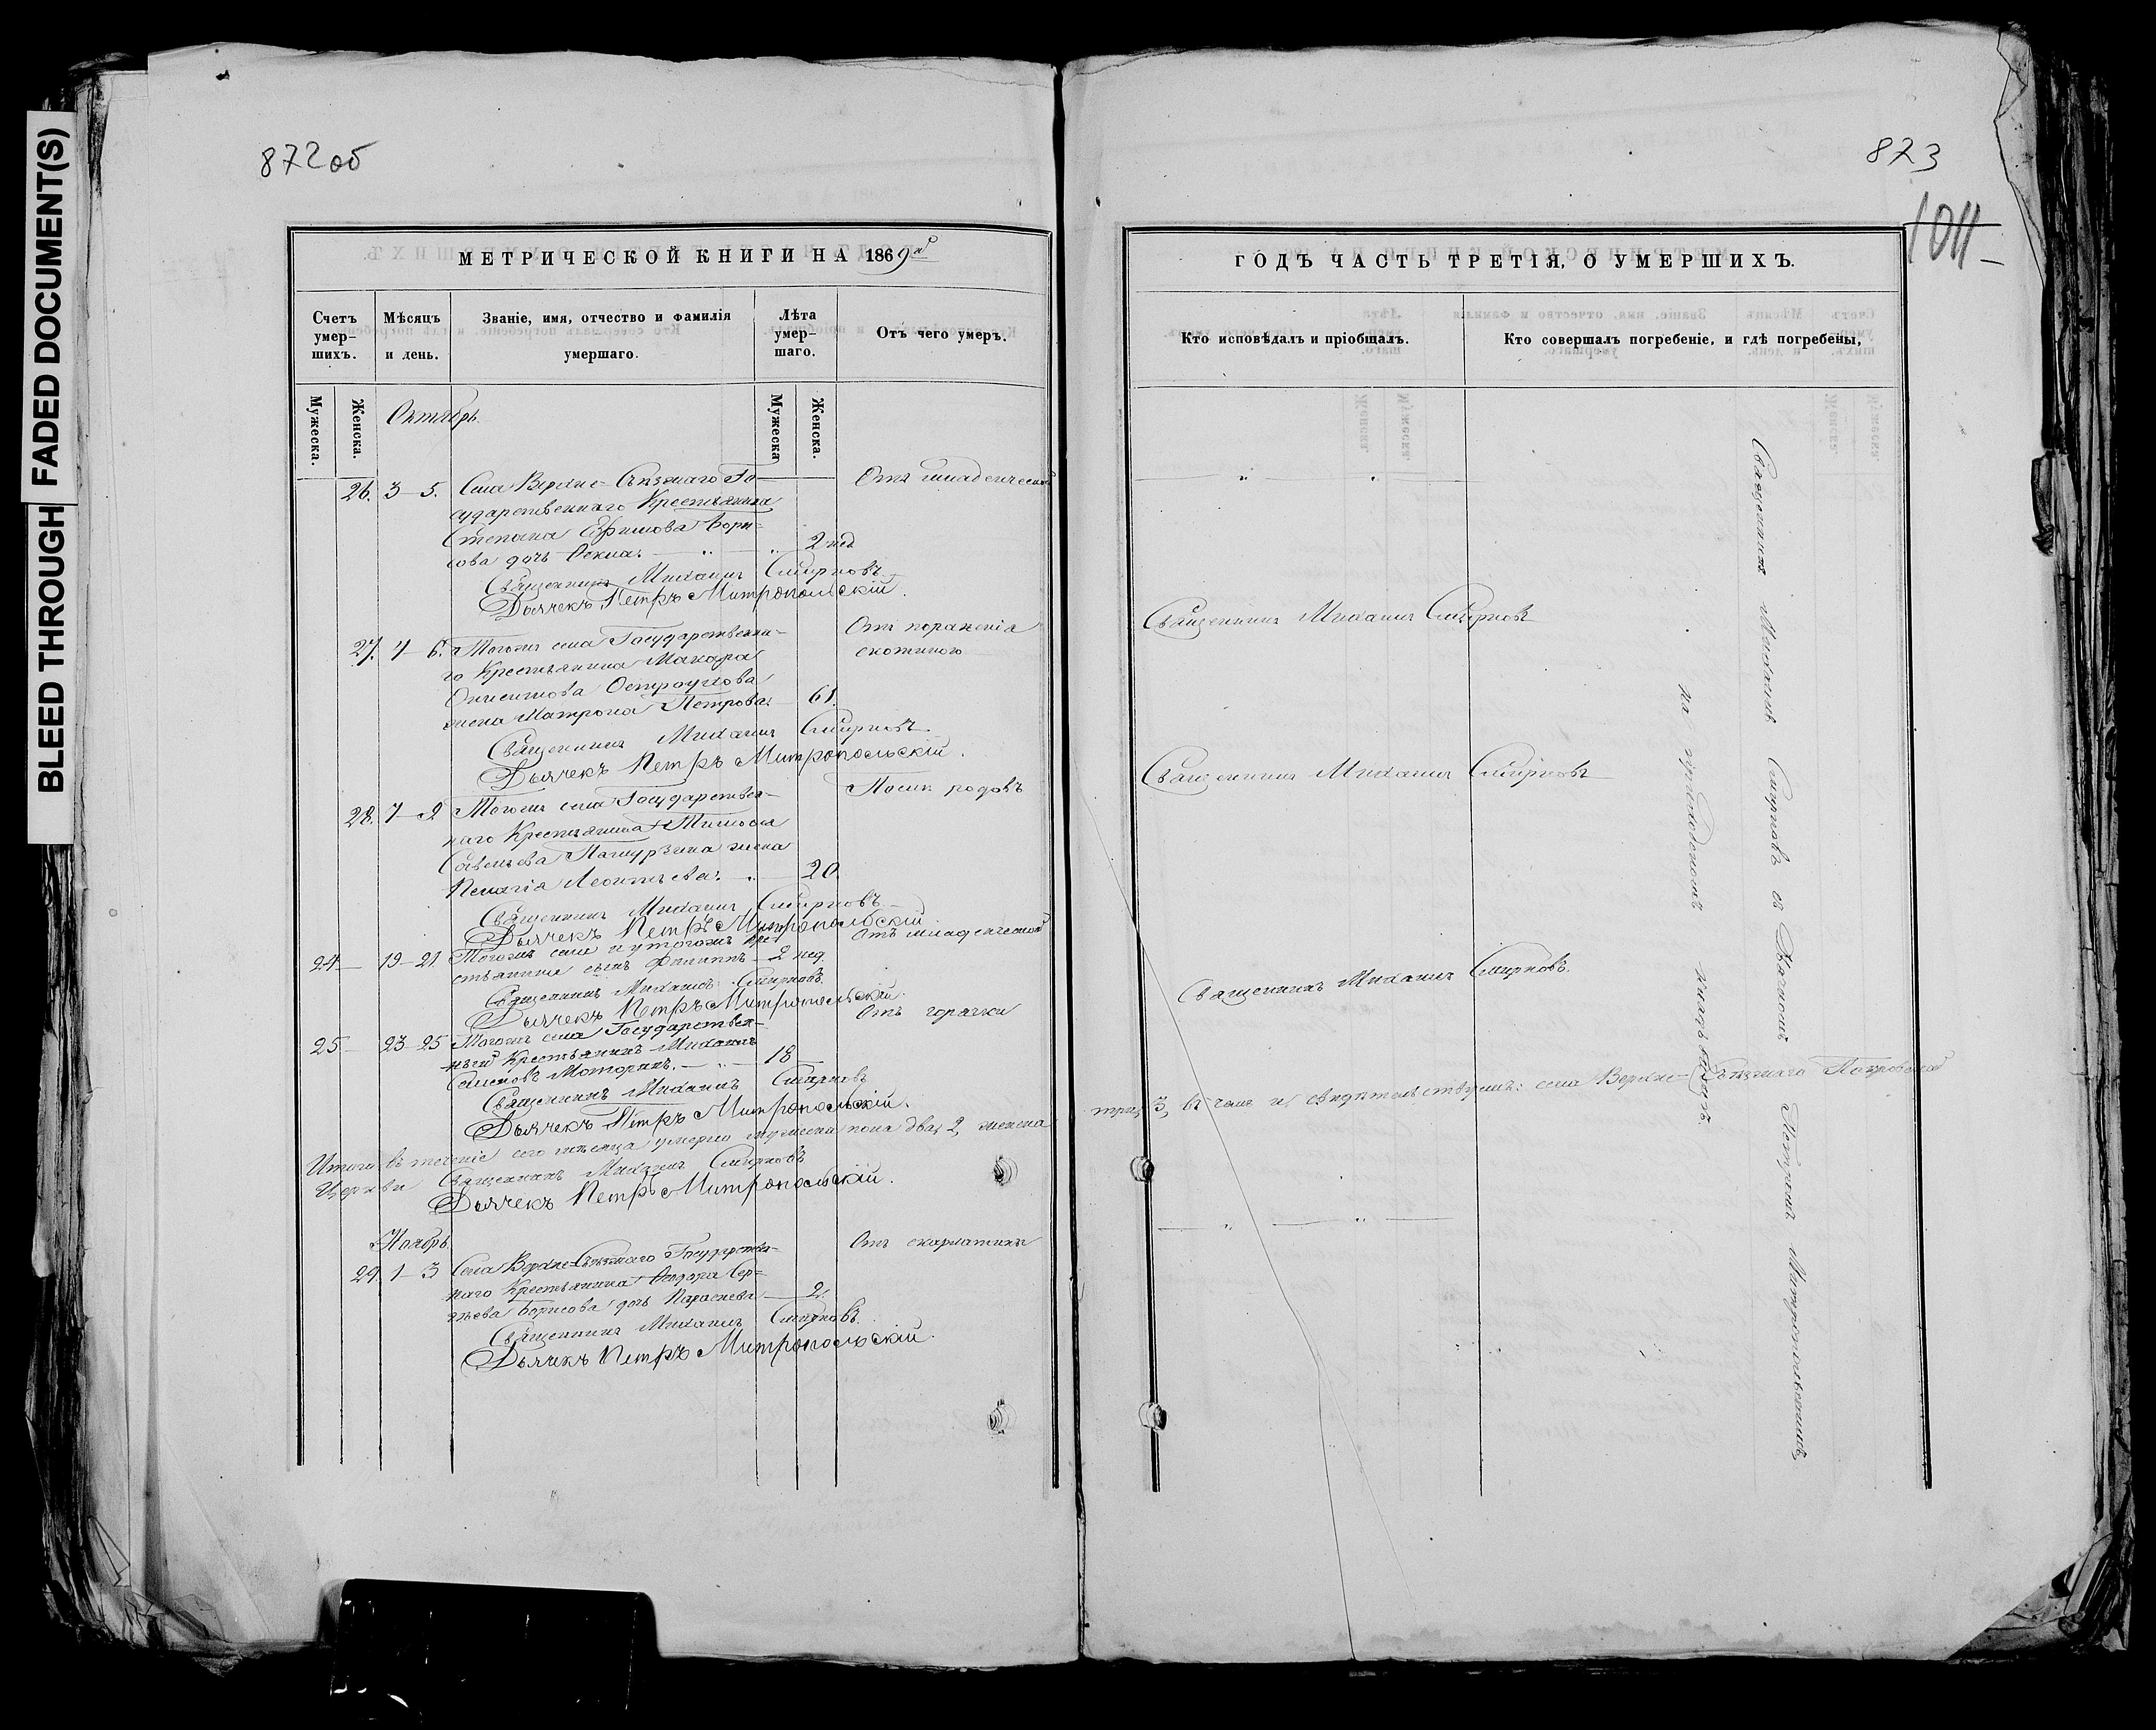 BLEED THROUGH FADED DOCUMENT(S)
872об
МЕТРИЧЕСКОЙ КНИГИ НА 1869й
Счетъ умер-шихъ.
Мѣсяцъ и день.
Званіе, имя, отчество и фамилія умершаго.
Лѣта умер-шаго.
Отъ чего умеръ.
Мужеска.
Женска.
Мужеска
Женска.
Октябрь.
26. 3 – 5. Села Верхне- Го- Отъ младенческой
сударственнаго Крестьянина
Степана Ефимова Бори=
сова дочь 2 нед
Священникъ Михаилъ Смирновъ
Дьячекъ Петръ Митропольскій.
27. 4 – 6. Тогожъ села Государственна- Отъ пораженія
го Крестьянина Макара скотиною
Остроумова
жена Матрона Петрова. 61.
Священникъ Михаилъ Смирновъ.
Дьячекъ Петръ Митропольскій.
28. 7 – 2 Тогожъ села Государствен- Послѣ родовъ
наго Крестьянина Тимофея
Савельева жена
Пелагія Леонтьева. 20.
Священникъ Михаилъ Смирновъ.
Дьячекъ Петръ Митропольскій.
24 – 19 – 21. Тогожъ села у тогожъ Кре- Отъ младенческой
стьянина сынъ Филиппъ – 2 нед.
Священникъ Михаилъ Смирновъ.
Дьячекъ Петръ Митропольскій.
25 – 23 – 25 Тогожъ села Государствен- Отъ горячки
ный Крестьянинъ Михаилъ
Семеновъ Моторинъ. 18
Священникъ Михаилъ Смирновъ
Дьячекъ Петръ Митропольскій.
Итого въ теченіе сего мѣсяца умерло мужеска пола два, 2, женска
Церкви Священникъ Михаилъ Смирновъ
Дьячекъ Петръ Митропольскій.
Ноябрь.
29. 1 – 3 Села Верхне- Государствен- Отъ скарлатины
наго Крестьянина Федора Сер=
гѣева Борисова дочь Параскева 2.
Священникъ Михаилъ Смирновъ.
Дьячекъ Петръ Митропольскій.
823
1011
ГОДЪ ЧАСТЬ ТРЕТІЯ, О УМЕРШИХЪ.
Кто исповѣдалъ и пріобщалъ.
Кто совершалъ погребеніе, и гдѣ погребены,
Священникъ Михаилъ Смирновъ
Священникъ Михаилъ Смирновъ
Священникъ Михаилъ Смирновъ.
три, 3, въ чемъ и свидѣтельствуемъ: села Верхне- Покровской
Священникъ Михаилъ Смирновъ съ Дьячкомъ Петромъ Митропольскимъ
на приходскомъ кладбищѣ.